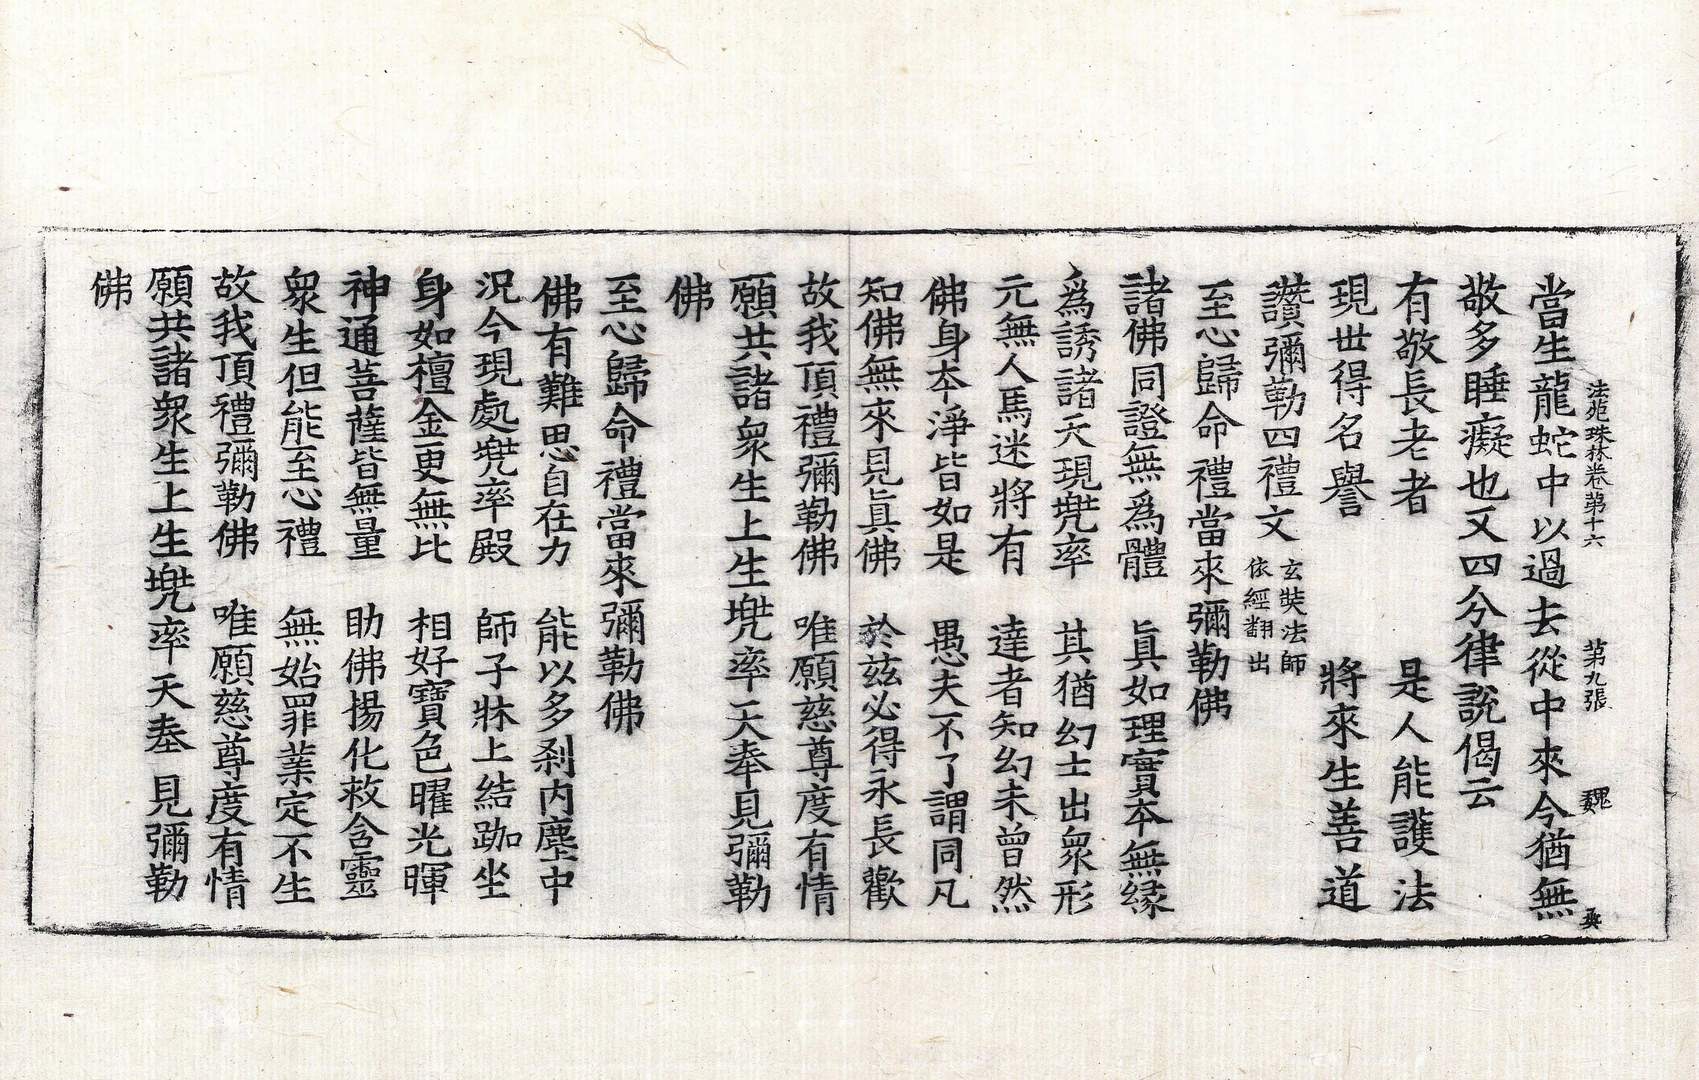 法苑珠林卷第十六 第九張 魏
當生龍蛇中以過去從中來今猶無
敬多睡癡也又四分律說偈云
有敬長老者 是人能護法
現世得名譽 將來生善道
讚彌勒四禮文 玄奘法師
依經翻出
至心歸命禮當來彌勒佛
諸佛同證無爲體 眞如理實本無緣
爲誘諸天現兠率 其猶幻士出衆形
元無人馬迷將有 達者知幻未曾然
佛身夲淨皆如是 愚夫不了謂同凡
知佛無來見眞佛 於茲必得永長歡
故我頂禮彌勒佛 唯願慈尊度有情
願共諸衆生上生兠率天奉見彌勒
佛
至心歸命禮當來彌勒佛
佛有難思自在力 能以多刹内塵中
況今現處兠率殿 師子牀上結跏坐
身如檀金更無比 相好寶色曜光暉
神通菩薩皆無量 助佛揚化救含靈
衆生但能至心禮 無始罪業定不生
故我頂禮彌勒佛 唯願慈尊度有情
願共諸衆生上生兠率天奉見彌勒
佛